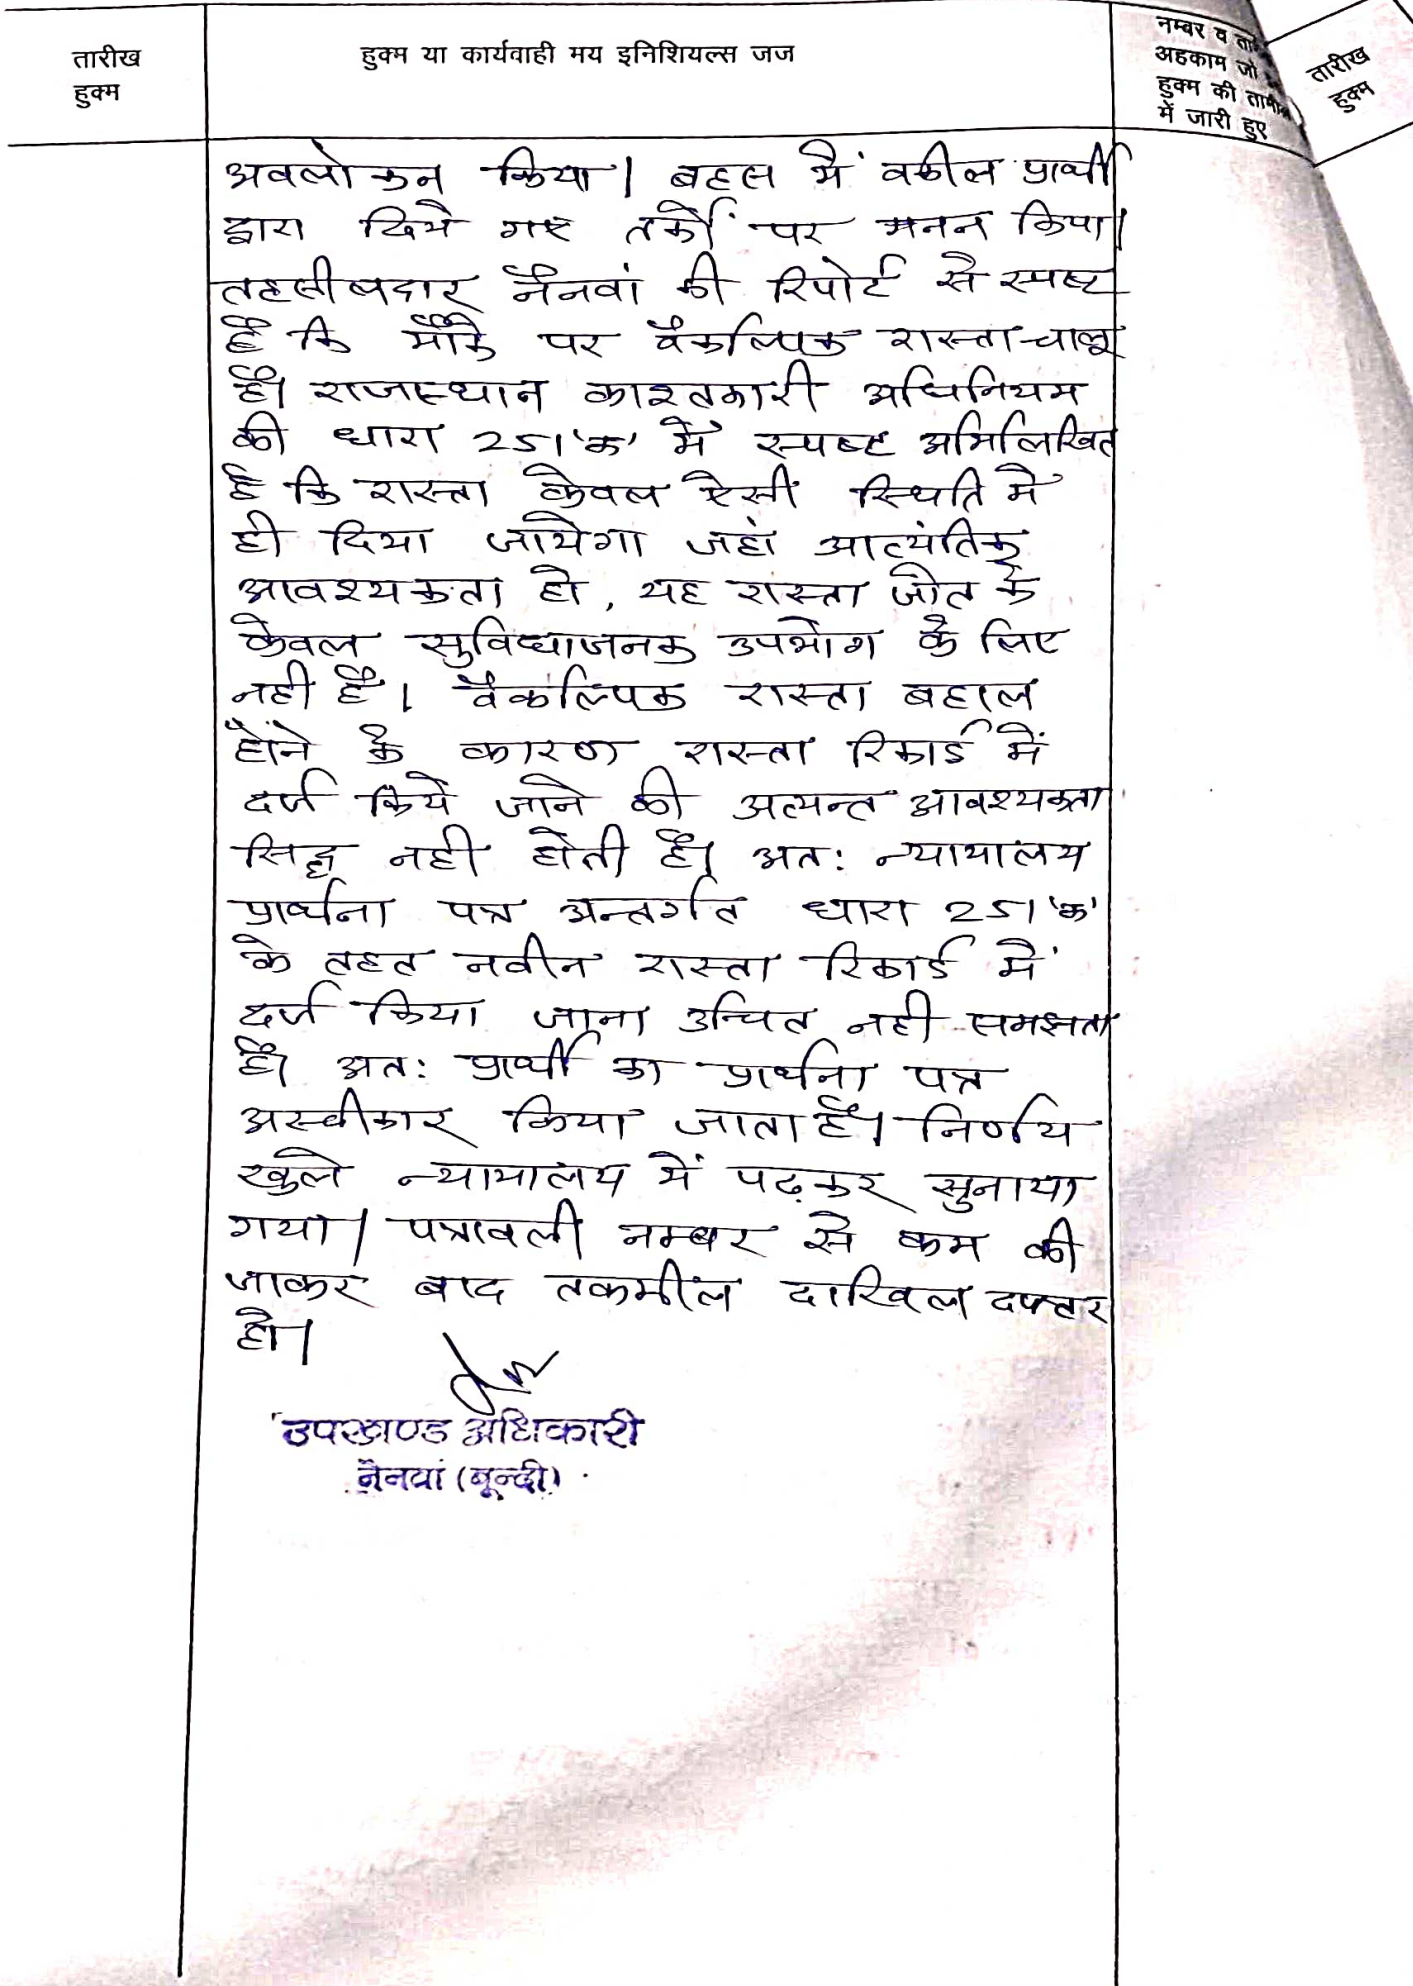 तारीख
हुक्म
हुक्म या कार्यवाही मय इनिशियल्स जज
नम्बर व
अहकाम जो
हुक्म की
में जारी हुए
तारीख
हुक्म
अवलोकन किया। बहस में वकील प्रार्थी
द्वारा दिये गए तर्को पर मनन किया।
तहसीलदार नैनवां की रिपोर्ट से स्पष्ट
है कि मौके पर वैकल्पिक रास्ता चालू
है। राजस्थान काश्तकारी अधिनियम
की धारा 251'क' में स्पष्ट अभिलिखित
है कि रास्ता केवल ऐसी स्थिति में
ही दिया जायेगा जहां आत्यंतिक
आवश्यकता हो, यह रास्ता जोत के
केवल सुविधाजनक उपभोग के लिए
नही है। वैकल्पिक रास्ता बहाल
होंने के कारण रास्ता रिकार्ड में
दर्ज किये जाने की अत्यन्त आवश्यकता
सिद्ध नही होती है। अत: न्यायालय
प्रार्थना पत्र अन्तर्गत धारा 251'क'
के तहत नवीन रास्ता रिकार्ड में
दर्ज किया जाना उचित नही समझता
है। अत: प्रार्थी का प्रार्थना पत्र
अस्वीकार किया जाता है। निर्णय
खुले न्यायालय में पढ़कर सुनाया
गया। पत्रावली नम्बर से कम की
जाकर बाद तकमील दाखिल दफ्तर
हो।
उपखण्ड अधिकारी
नैनवां (बून्दी)